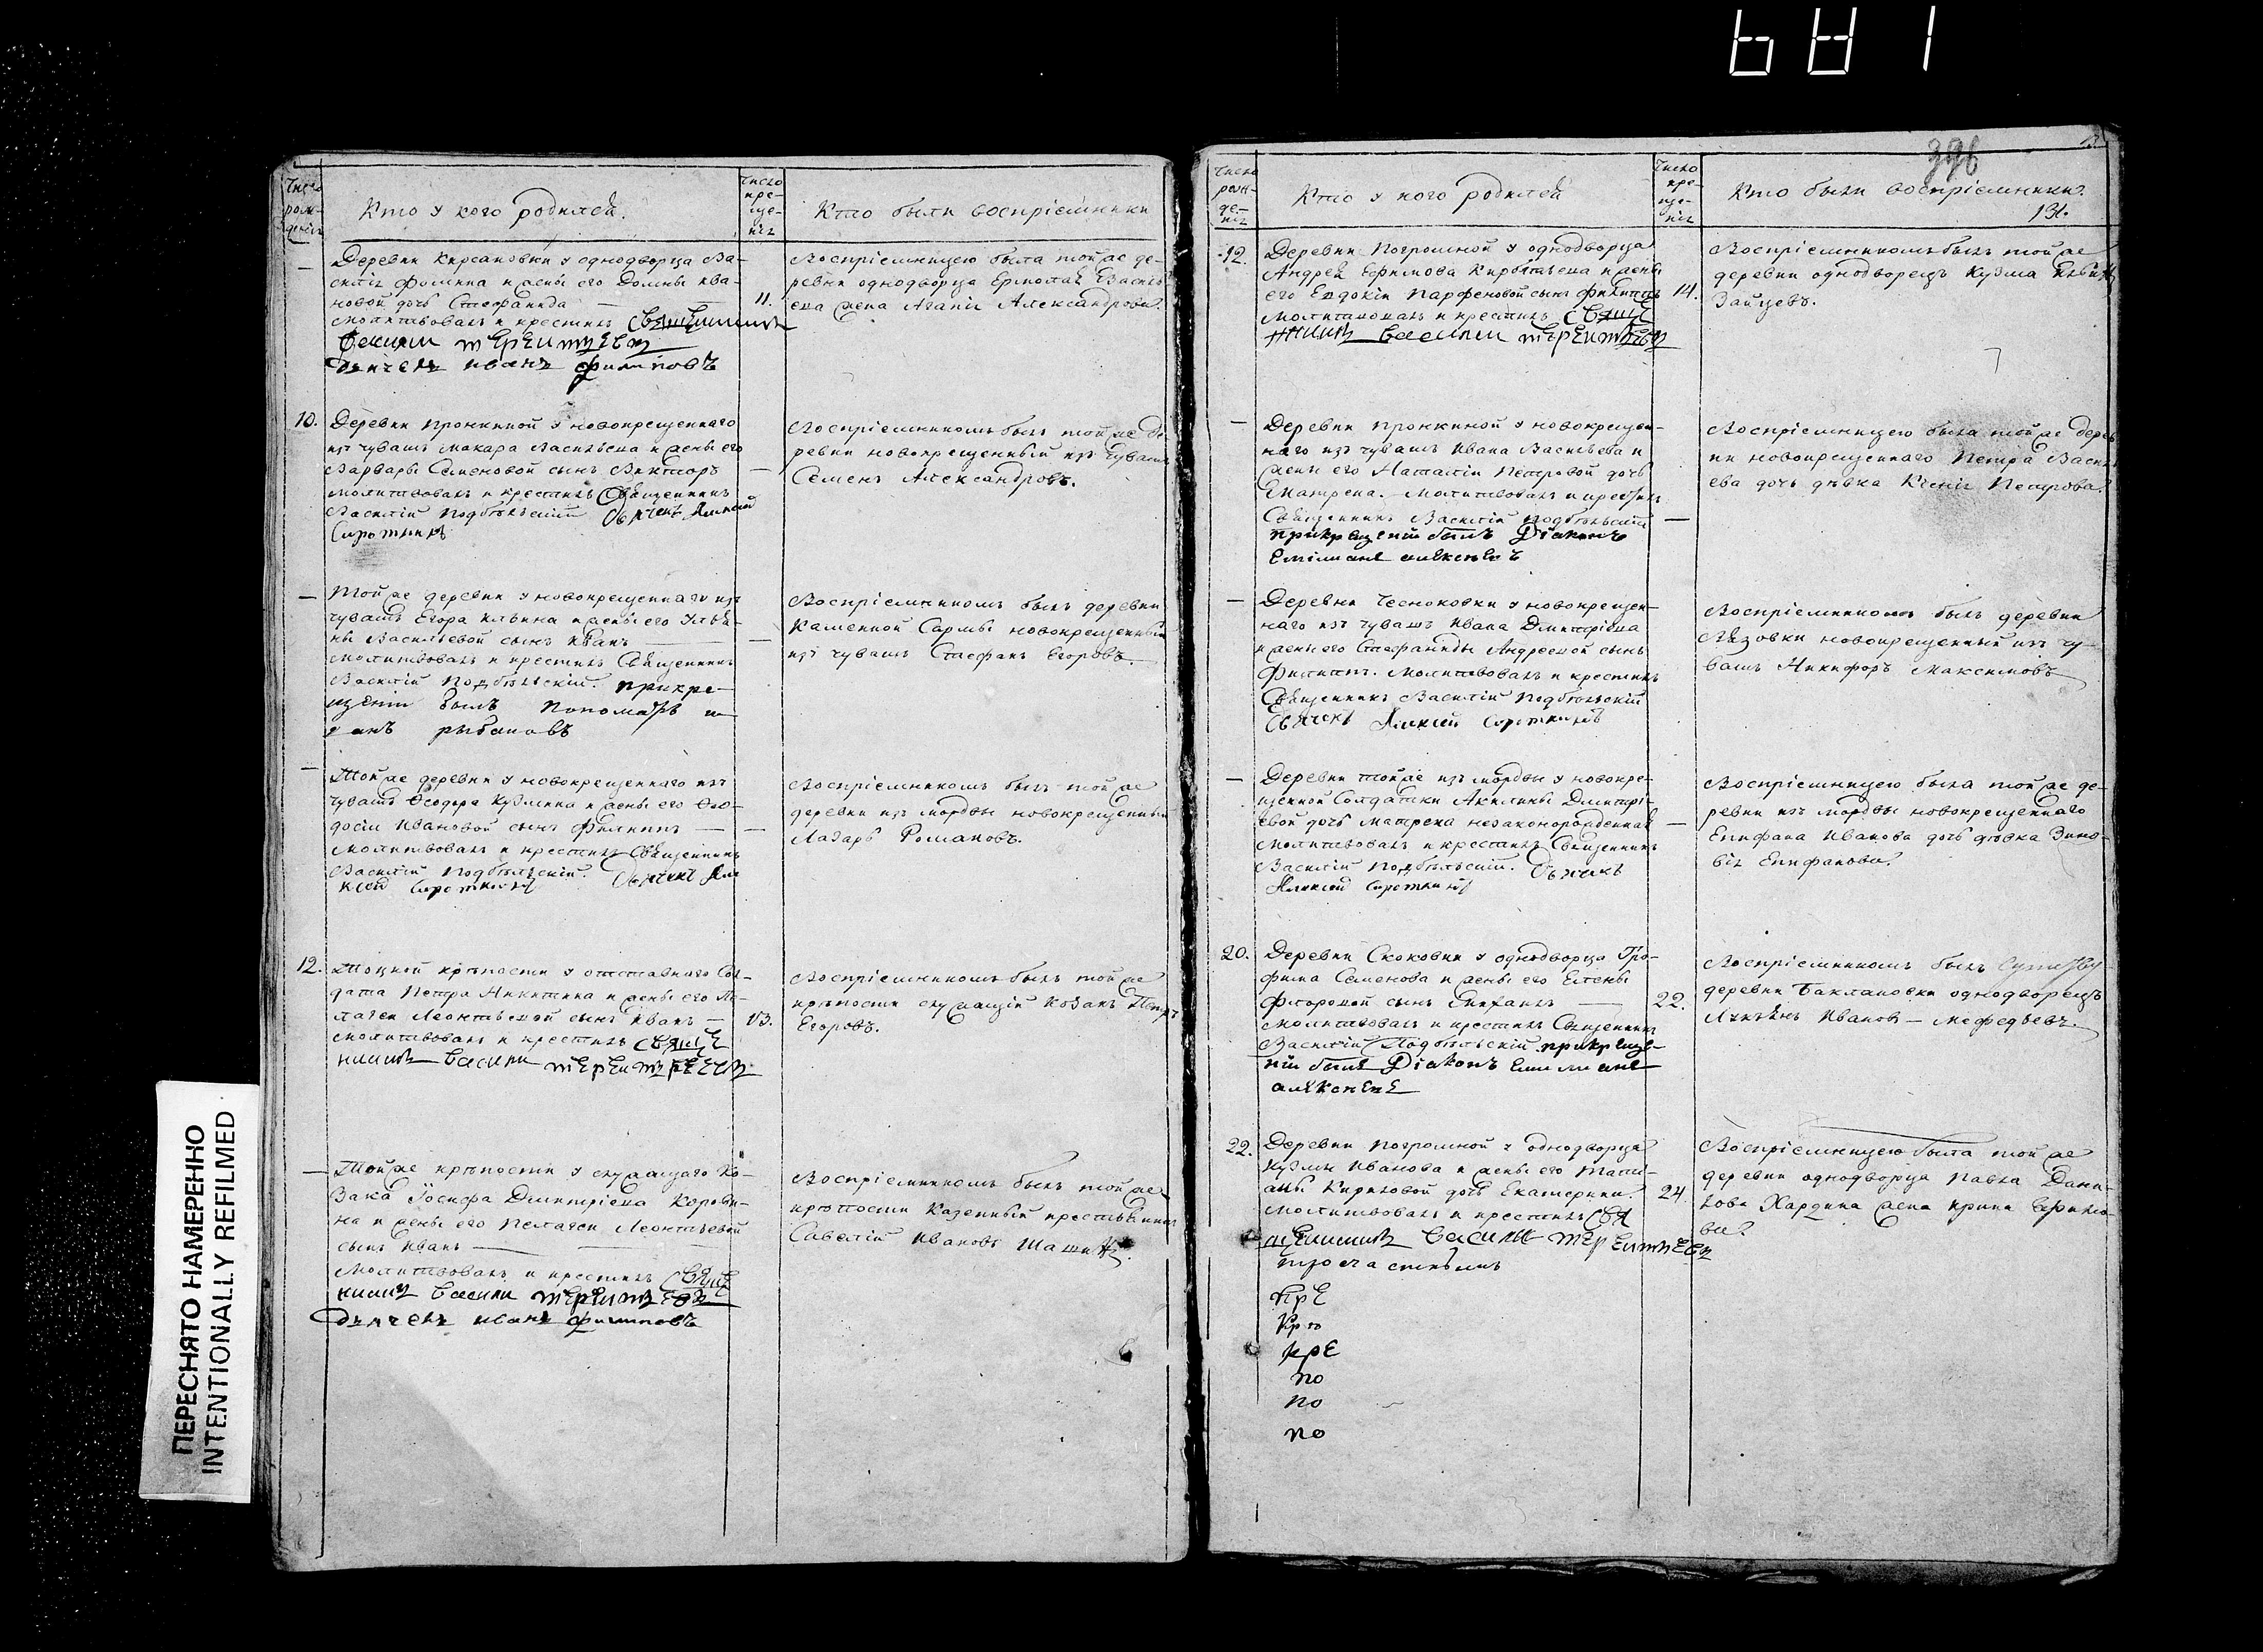 681
396
131.
ПЕРЕСНЯТО НАМЕРЕННО
INTENTIONALLY REFILMED
Число
рож-
денія
Кто у кого родился.
Число
кре-
ще-
нія
Кто были воспріемники
Деревни Кирсановки у однодворца Ва-
силія Фомина и жены его Домны Ива-
новой дочь Стефанида —
молитвовалъ и крестилъ Священникъ
Василий Терентьевъ
дьячекъ иванъ филиповъ
11.
Воспріемницею была той же де-
ревни однодворца Ермолая
жена Агапія Александрова.
10. Деревни Пронкиной у новокрещеннаго
изъ чувашъ Макара Васильева и жены его
Варвары Семеновой сынъ Викторъ
молитвовалъ и крестилъ Священникъ
Василій Подбѣльскій Дьячекъ Алексей
Сироткинъ
—
Воспріемникомъ былъ той же де-
ревни новокрещенный изъ чувашъ
Семенъ Александровъ.
— Той же деревни у новокрещеннаго изъ
чувашъ Егора Ильина и жены его Улья-
ны Васильевой сынъ Иванъ
молитвовалъ и крестилъ Священникъ
Василій Подбѣльскій. прикре-
щеніи былъ пономарь и
ванъ рыбаковъ
—
Воспріемникомъ былъ деревни
Каменной Сармы новокрещенный
изъ чувашъ Стефанъ Егоровъ.
— Той же деревни у новокрещеннаго изъ
чувашъ Ѳеодора Кузмина и жены его Ѳео-
досіи Ивановой сынъ Филиппъ —
молитвовалъ и крестилъ Священникъ
Василій Подбѣльскій. Дьячекъ Але
ксей Сироткинъ
—
Воспріемникомъ былъ той же
деревни изъ мордвы новокрещенный
Лазарь Романовъ.
12. Тоцкой крѣпости у отставнаго Сол-
дата Петра Никитина и жены его Пе-
лагеи Леонтьевой сынъ Иванъ —
молитвовалъ и крестилъ Свяще
нникъ Василий Терентьевъ
13.
Воспріемникомъ былъ той же
крѣпости служащій козакъ Петръ
Егоровъ.
— Той же крѣпости у служащаго Ко-
зака Іосифа Дмитріева Корови-
на и жены его Пелагеи Леонтьевой
сынъ Иванъ —
молитвовалъ и крестилъ Свяще
нникъ Василий Терентьевъ
дьячекъ иванъ филиповъ
Воспріемникомъ былъ той же
крѣпости казенный крестьянинъ
Савелій Ивановъ
Число
рож-
де-
нія
Кто у кого родился
Число
кре-
ще-
нія
Кто были воспріемники.
12. Деревни Погромной у однодворца
Андрея Ефимова и жены
его Евдокіи Парфеновой сынъ Филиппъ
молитвовалъ и крестилъ Свяще
нникъ Василий Терентьевъ
14.
Воспріемникомъ былъ той же
деревни однодворецъ Кузма
Зайцевъ.
— Деревни Пронкиной у новокрещен-
наго изъ чувашъ Ивана Васильева и
жены его Наталіи Петровой дочь
Матрена. Молитвовалъ и крестилъ
Священникъ Василій Подбѣльскій
прикрещеніи былъ Діаконъ
—
Воспріемницею была той же дерев
ни новокрещеннаго Петра Василь
ева дочь дѣвка Ксенія Петрова.
— Деревни Чесноковки у новокрещен-
наго изъ чувашъ Ивана Дмитріева
и жены его Стефаниды Андреевой сынъ
Филиппъ. молитвовалъ и крестилъ
Священникъ Василій Подбѣльскій
Дьячекъ Алексей Сироткинъ
Воспріемникомъ былъ деревни
новокрещенный изъ чу-
вашъ Никифоръ Максимовъ
— Деревни той же изъ мордвы у новокре-
щенной Солдатки Акилины Дмитрі-
евой дочь Матрена незаконорожденная
молитвовалъ и крестилъ Священникъ
Василій Подбѣльскій. Дьячекъ
Алексей Сироткинъ
—
Воспріемницею была той же де-
ревни изъ мордвы новокрещеннаго
Епифана Иванова дочь дѣвка Зино-
вія Епифанова.
20. Деревни Скоковки у однодворца Тро-
фима Семенова и жены его Елены
Флоровой сынъ Михаилъ —
молитвовалъ и крестилъ Священникъ
Василій Подбѣльскій прикреще-
ніи былъ Діаконъ
22.
Воспріемникомъ былъ
деревни Баклановки однодворецъ
Лукьянъ Ивановъ — Мефедьевъ.
22. Деревни Погромной у однодворца
Кузмы Иванова и жены его Тати-
аны Кириловой дочь Екатерина.
молитвовалъ и крестилъ Свя
щенникъ Василий Терентьевъ
24.
Воспріемницею была той же
деревни однодворца Павла Дани-
лова Хардина жена Ирина Ефимо-
ва.
кре
кре
по
по
по